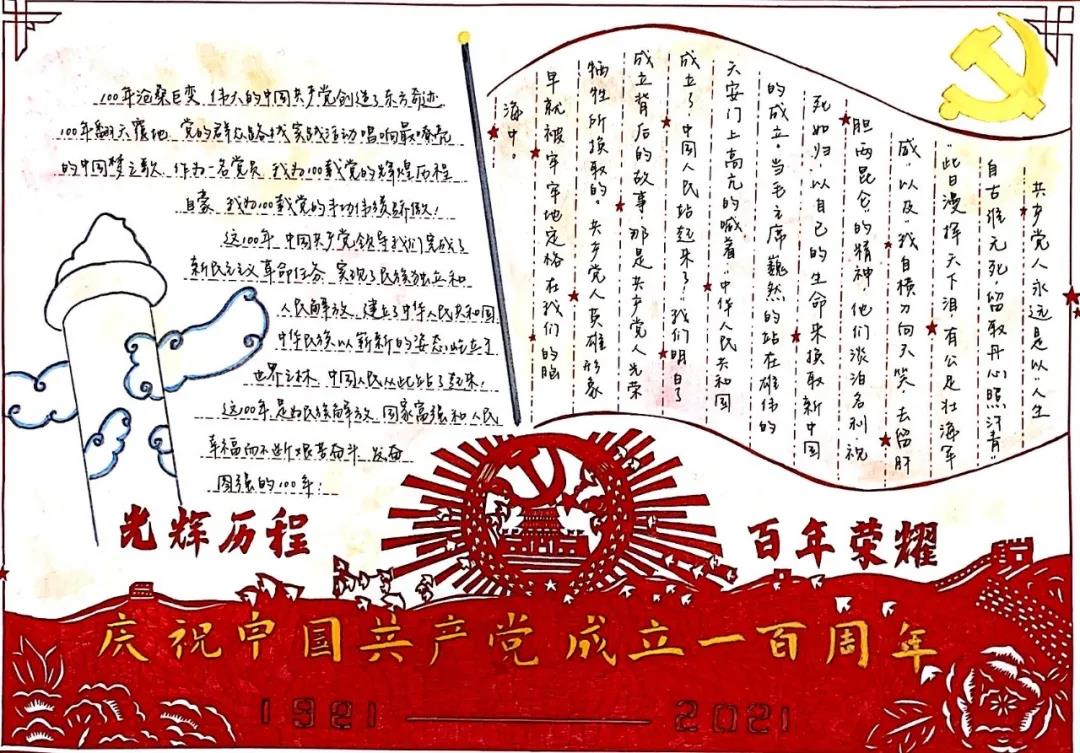 100年沧桑巨变,伟大的中国共产党创造了东方奇迹
100年翻天覆地,党的群众路线实践活动唱响最嘹亮
的中国梦之歌.作为一名党员,我为100载党的辉煌历程
自豪,我为100载党的丰功伟绩骄傲!
这100年,中国共产党领导我们完成了
新民主主义革命任务,实现了民族独立和
人民解放,建立了中华人民共和国
中华民族以崭新的姿态屹立于
世界之林,中国人民从此站了起来!
这100年是为民族解放、国家富强和人民
幸福而不断艰苦奋斗、发奋
图强的100年!
共产党人永远是以"人生
自古谁无死,留取丹心照汗青"
"此日漫挥天下泪,有公足壮海军
威"以及"我自横刀向天笑,去留肝
胆两昆仑"的精神,他们淡泊名利、视
死如归,以自己的生命来换取新中国
的成立。当毛主席巍然的站在雄伟的
天安门上高亢的喊着:"中华人民共和国
成立了,中国人民站起来了"我们明白了
成立背后的故事,那是共产党人光荣
牺牲所换取的。共产党人英雄形象
早就被牢牢地定格在我们的脑
海中。
光辉历程
百年荣耀
庆祝中国共产党成立一百周年
1921——2021